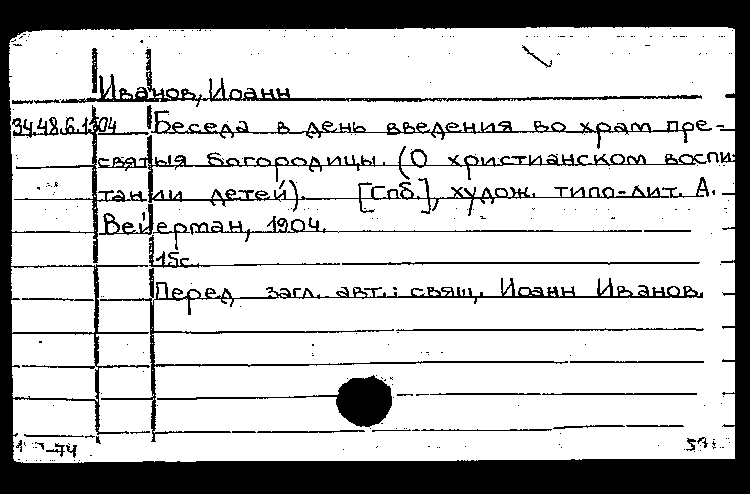 Иванов, Иоанн
34.48.6.1304 Беседа в день введения во храм пре-
святыя богородицы. (О христианском воспи-
тании детей). [Спб.], худож. типо-лит. А.
Вейерман, 1904.
15с.
Перед загл. авт.: свящ. Иоанн Иванов.